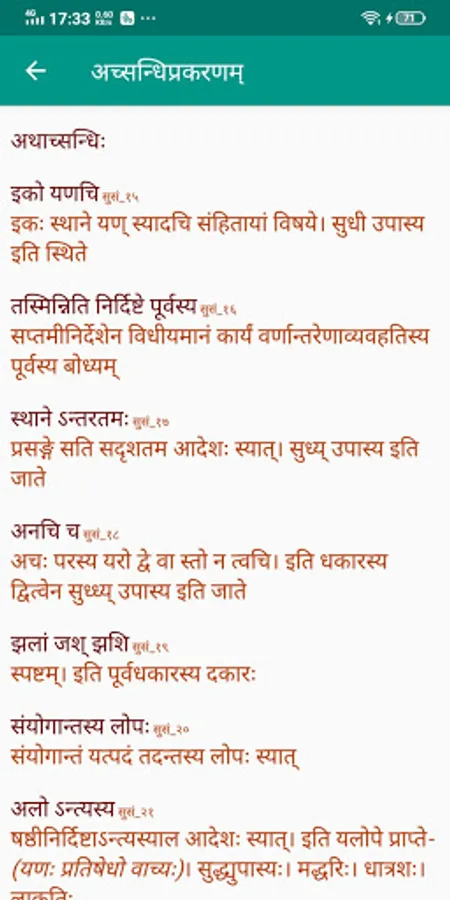 4G 17:33 0.60 KB/s ... 71
अच्सन्धिप्रकरणम्
अथाच्सन्धिः
इको यणचि सूसं_१५
इकः स्थाने यण् स्यादचि संहितायां विषये। सुधी उपास्य
इति स्थिते
तस्मिन्निति निर्दिष्टे पूर्वस्य सूसं_१६
सप्तमीनिर्देशेन विधीयमानं कार्यं वर्णान्तरेणाव्यवहतिस्य
पूर्वस्य बोध्यम्
स्थाने ऽन्तरतमः सूसं_१७
प्रसङ्गे सति सदृशतम आदेशः स्यात्। सुध्य् उपास्य इति
जाते
अनचि च सूसं_१८
अचः परस्य यरो द्वे वा स्तो न त्वचि। इति धकारस्य
द्वित्वेन सुध्ध्य् उपास्य इति जाते
झलां जश् झशि सूसं_१९
स्पष्टम्। इति पूर्वधकारस्य दकारः
संयोगान्तस्य लोपः सूसं_२०
संयोगान्तं यत्पदं तदन्तस्य लोपः स्यात्
अलो ऽन्त्यस्य सूसं_२१
षष्ठीनिर्दिष्टाऽन्त्यस्याल आदेशः स्यात्। इति यलोपे प्राप्ते-
(यणः प्रतिषेधो वाच्यः)। सुद्ध्युपास्यः। मद्धरिः। धात्रशः।
लाकृतिः